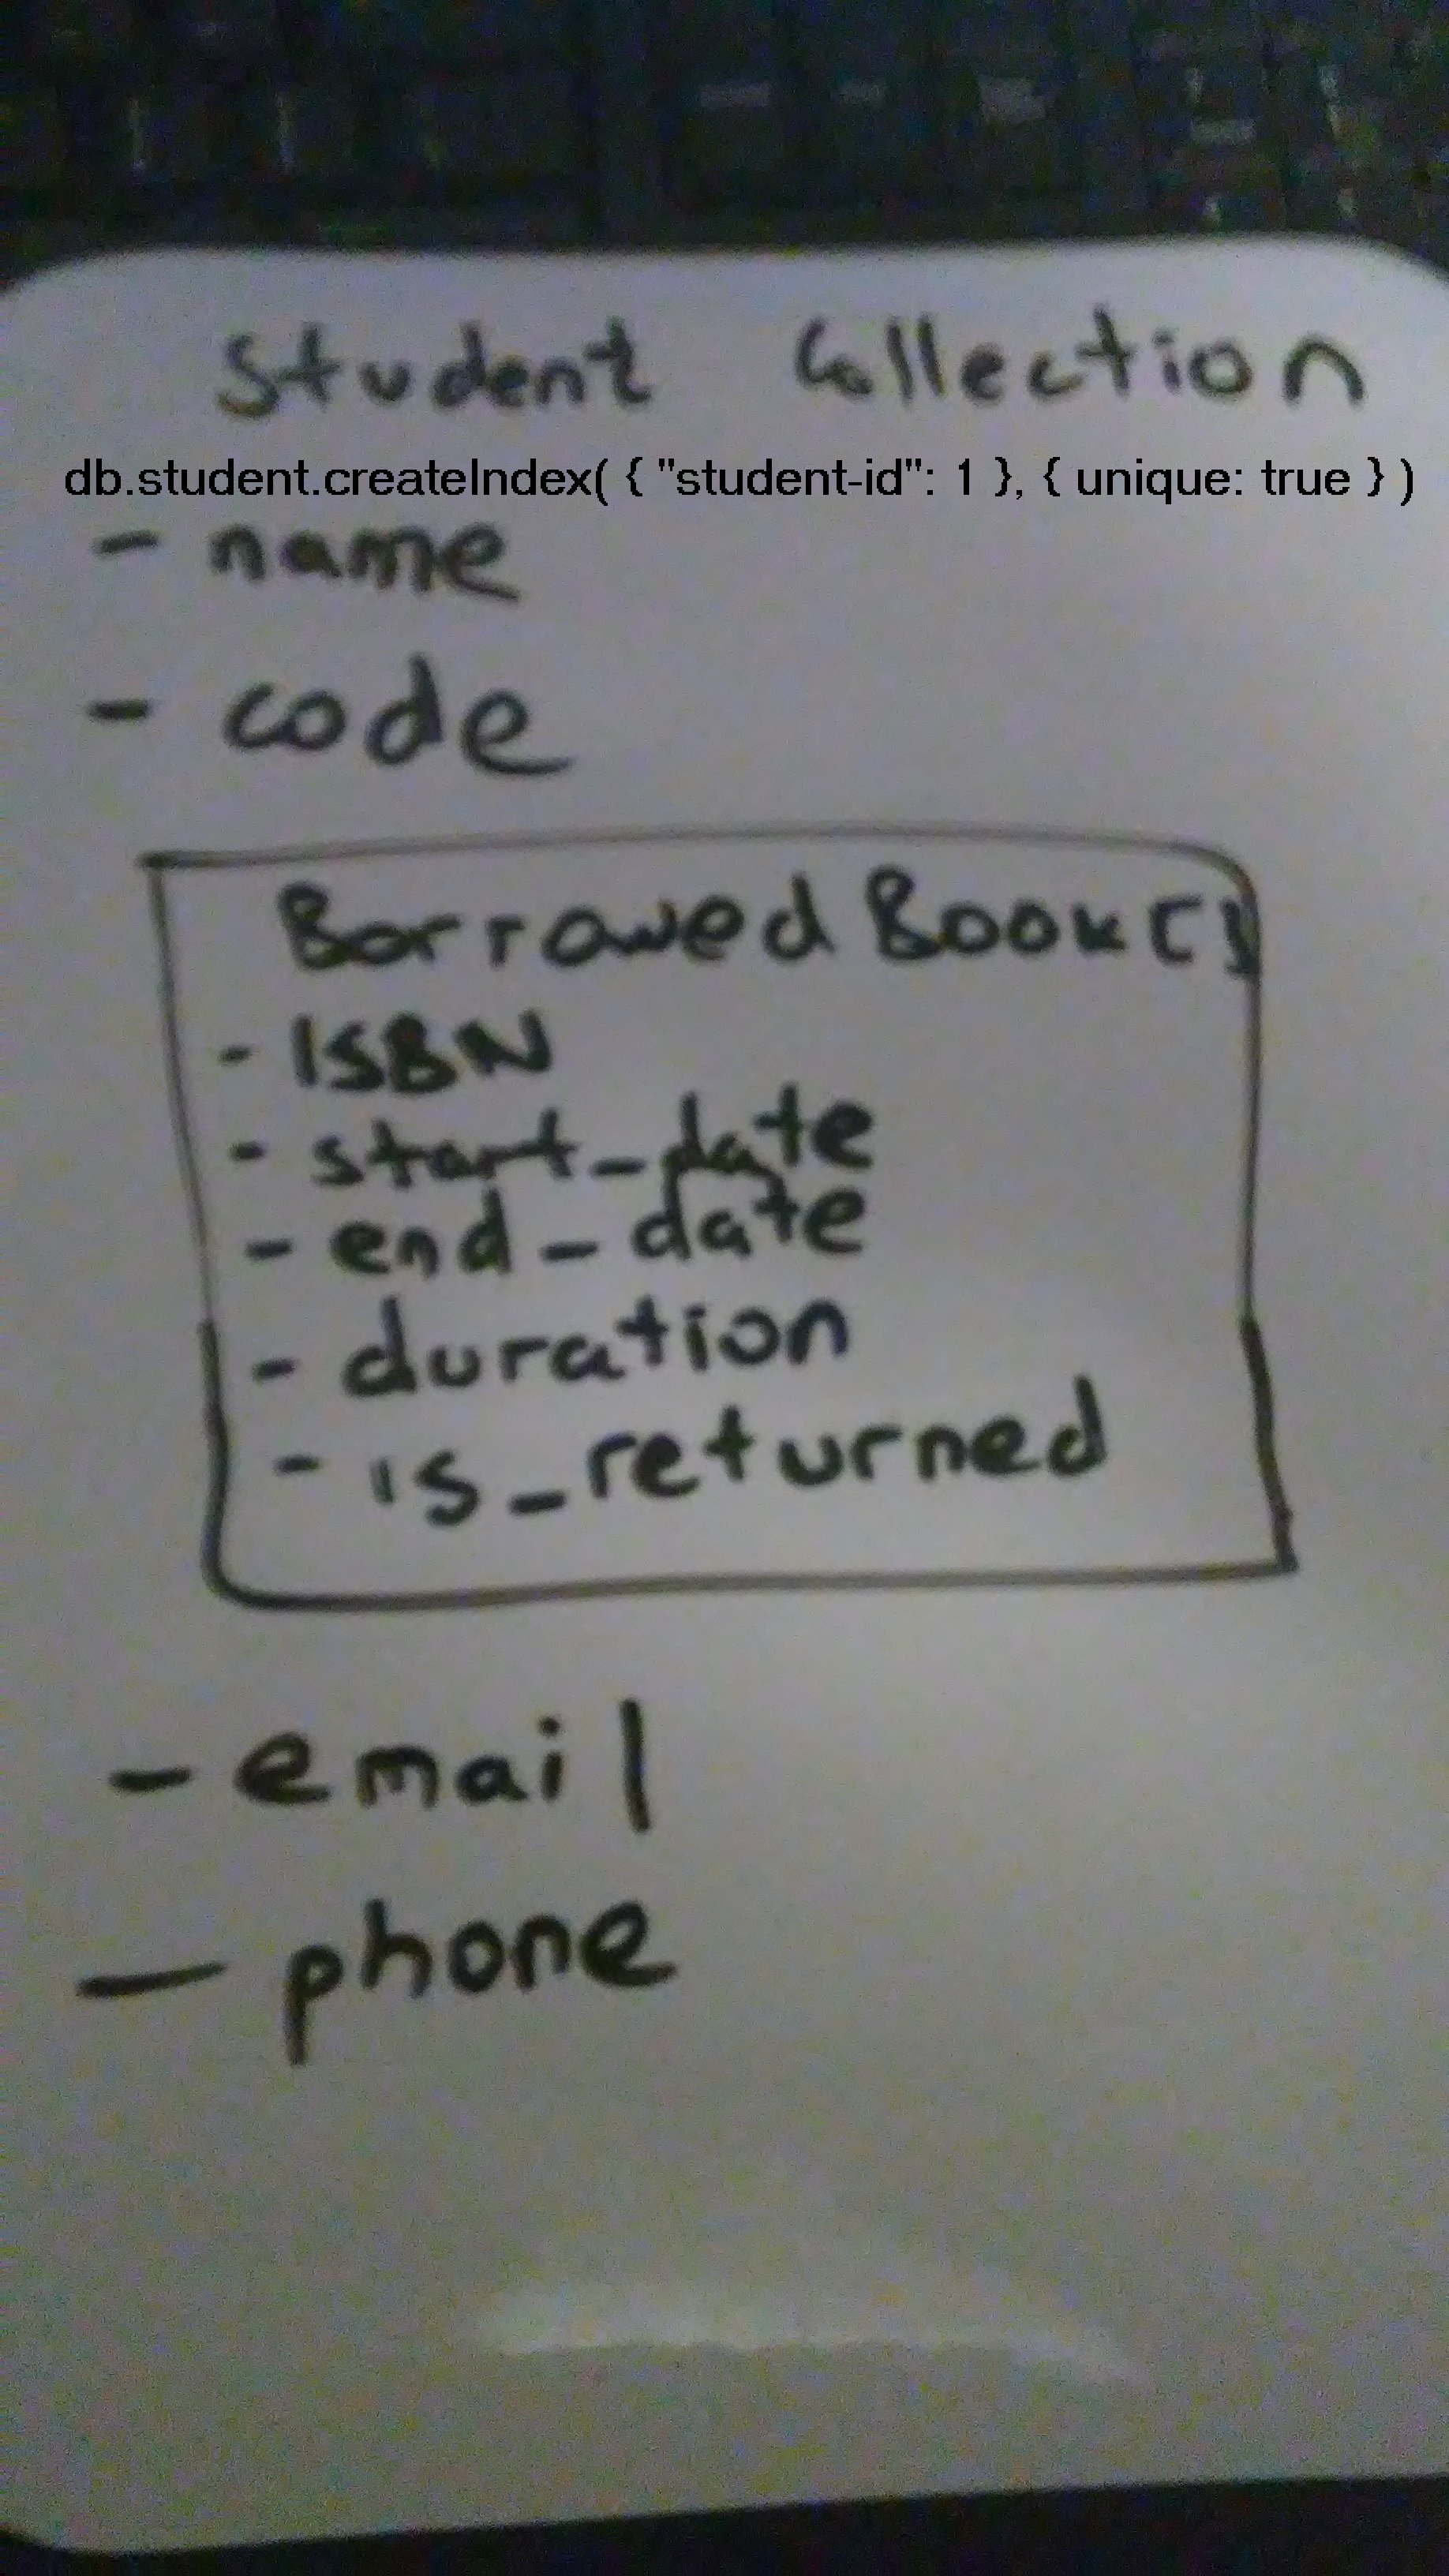 Student Collection
db.student.createIndex( { "student-id": 1 }, { unique: true } )
- name
- code
Borrowed Book[]
- ISBN
- start_date
- end_date
- duration
- is_returned
- email
- phone